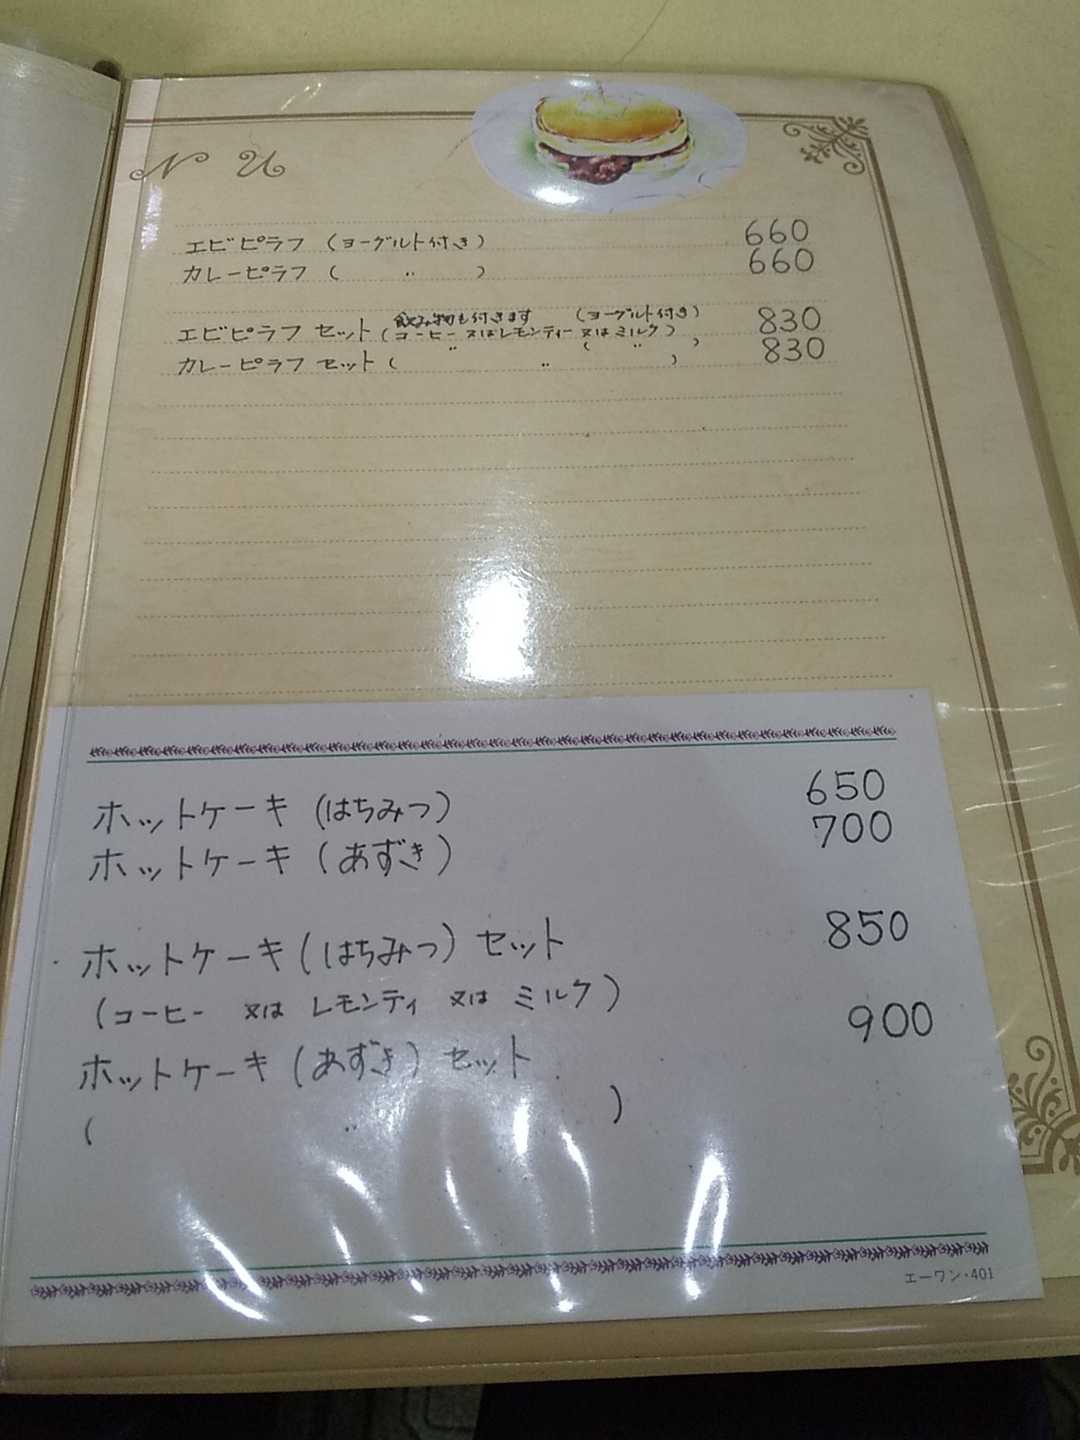 N U
エビピラフ (ヨーグルト付き) 660
カレーピラフ ( 〃 ) 660
飲み物も付きます (ヨーグルト付き)
エビピラフ セット (コーヒー 又はレモンティー 又はミルク) 830
〃 ( 〃 )
カレーピラフ セット ( 〃 ) 830
ホットケーキ (はちみつ) 650
ホットケーキ (あずき) 700
ホットケーキ (はちみつ) セット 850
(コーヒー 又は レモンティ 又は ミルク)
ホットケーキ (あずき) セット 900
( 〃 )
エーワン・401